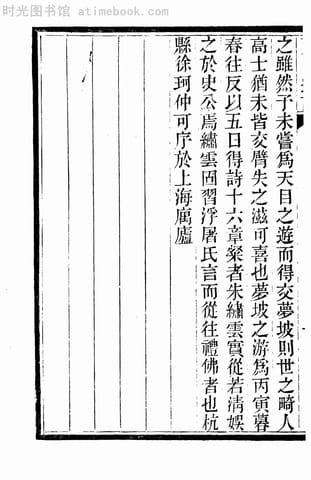 时光图书馆 atimebook.com
之雖然予未嘗爲天目之遊而得交夢坡則世之畸人
高士猶未皆交臂失之滋可喜也夢坡之游爲丙寅暮
春往反以五日得詩十六章粲者朱繡雲實從若清娛
之於史公焉繡雲固習浮屠氏言而從往禮佛者也杭
縣徐珂仲可序於上海寓廬